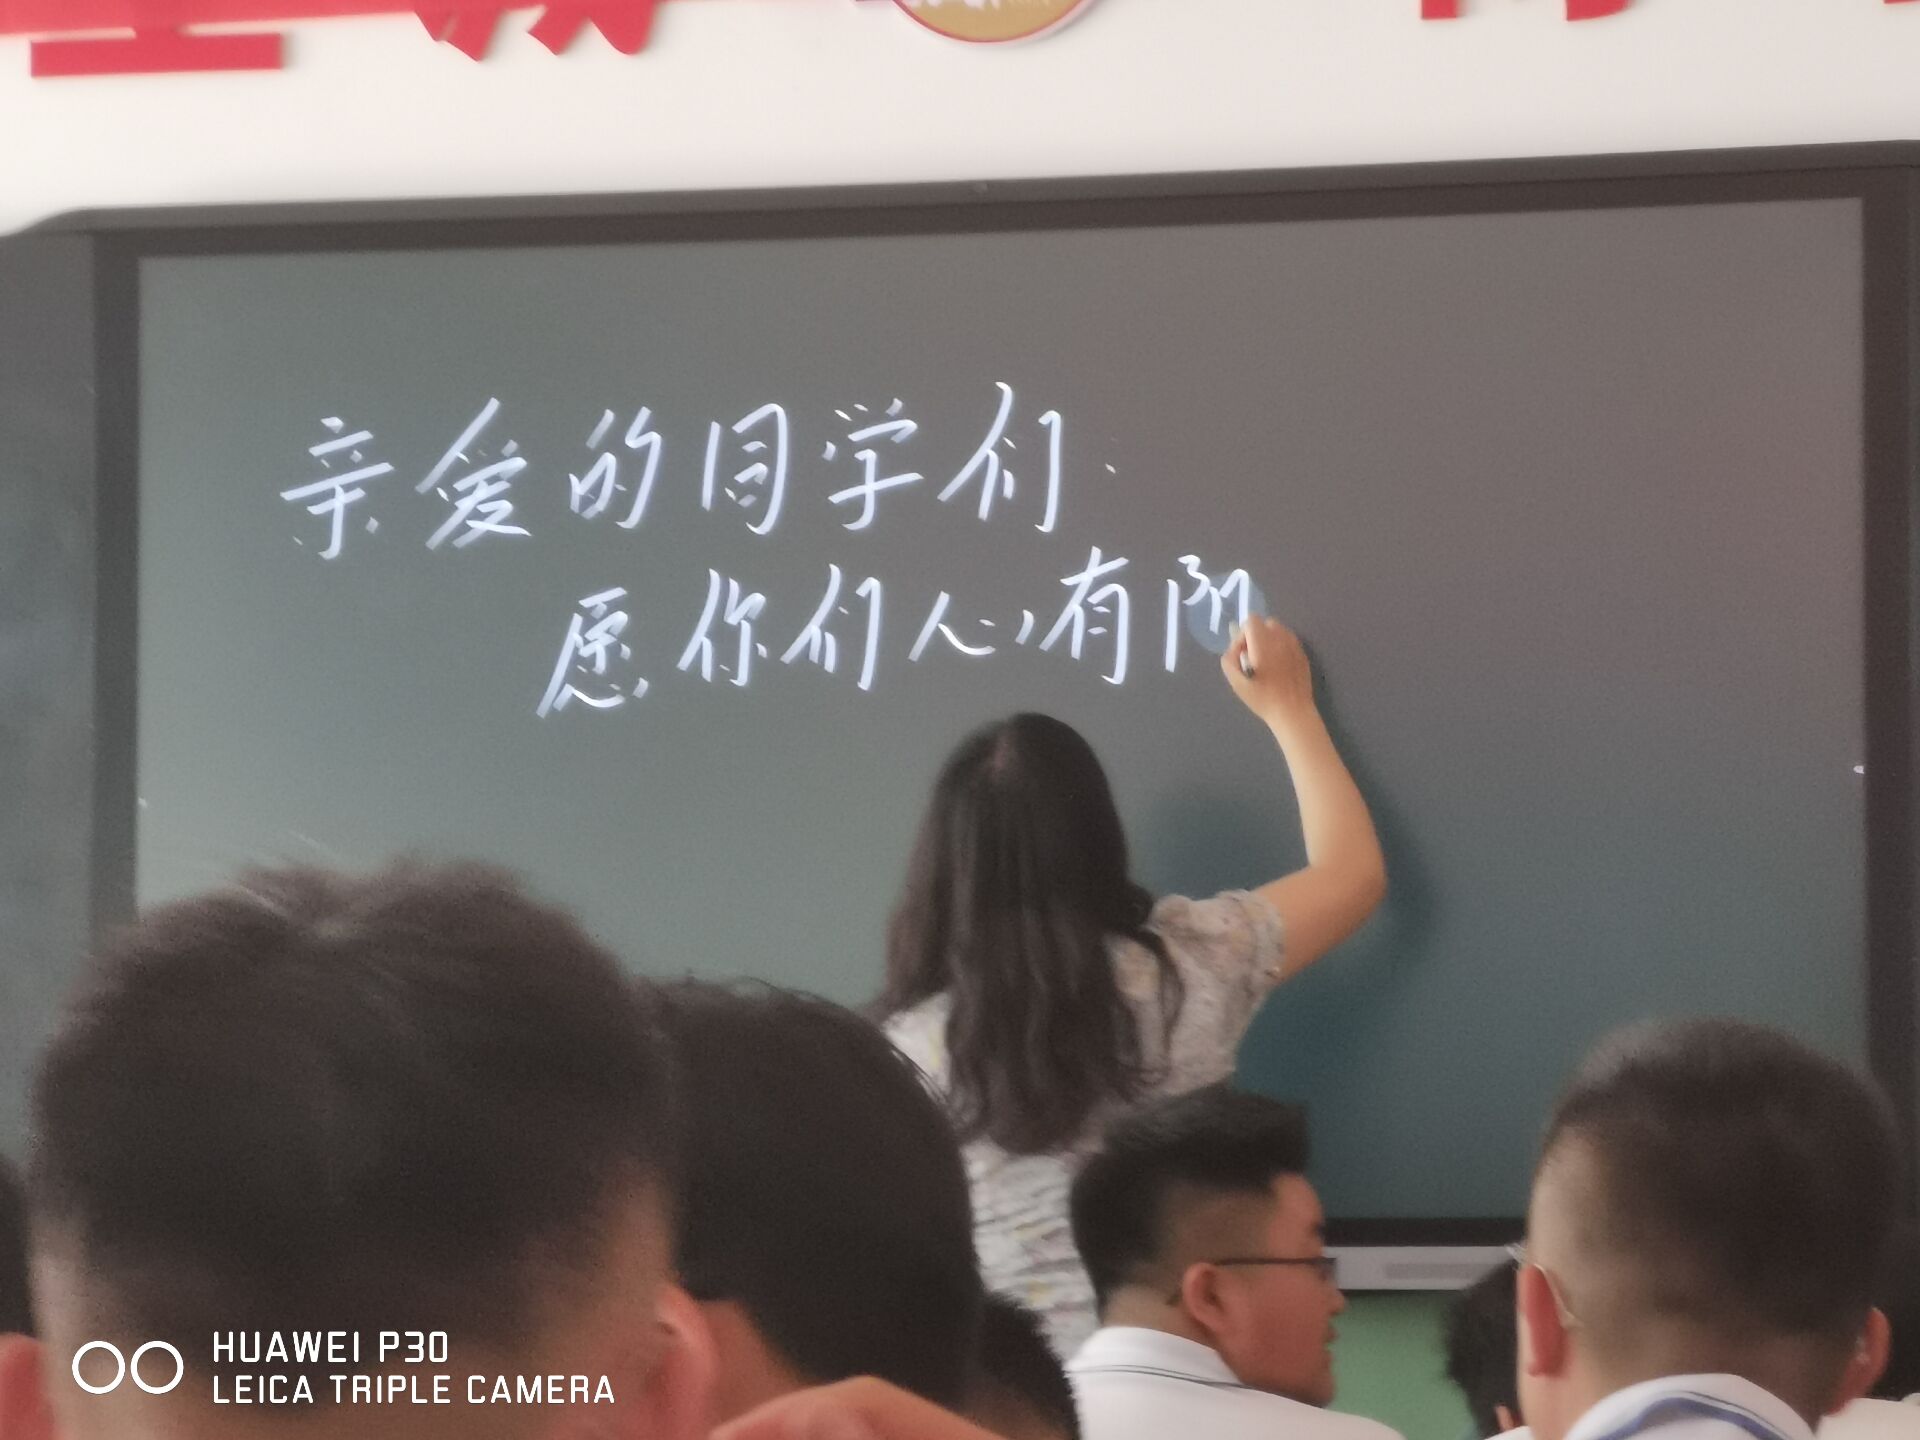 亲爱的同学们:
愿你们心有阳
HUAWEI P30
LEICA TRIPLE CAMERA